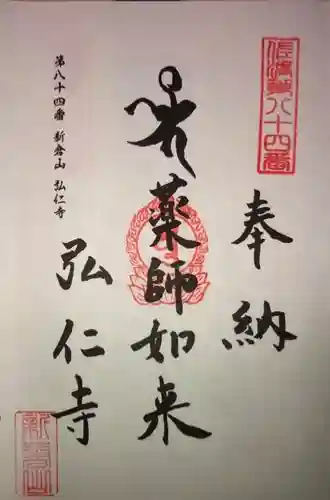 奉納
薬師如来
弘仁寺
第八十四番 新倉山 弘仁寺
第八十四番
新倉山